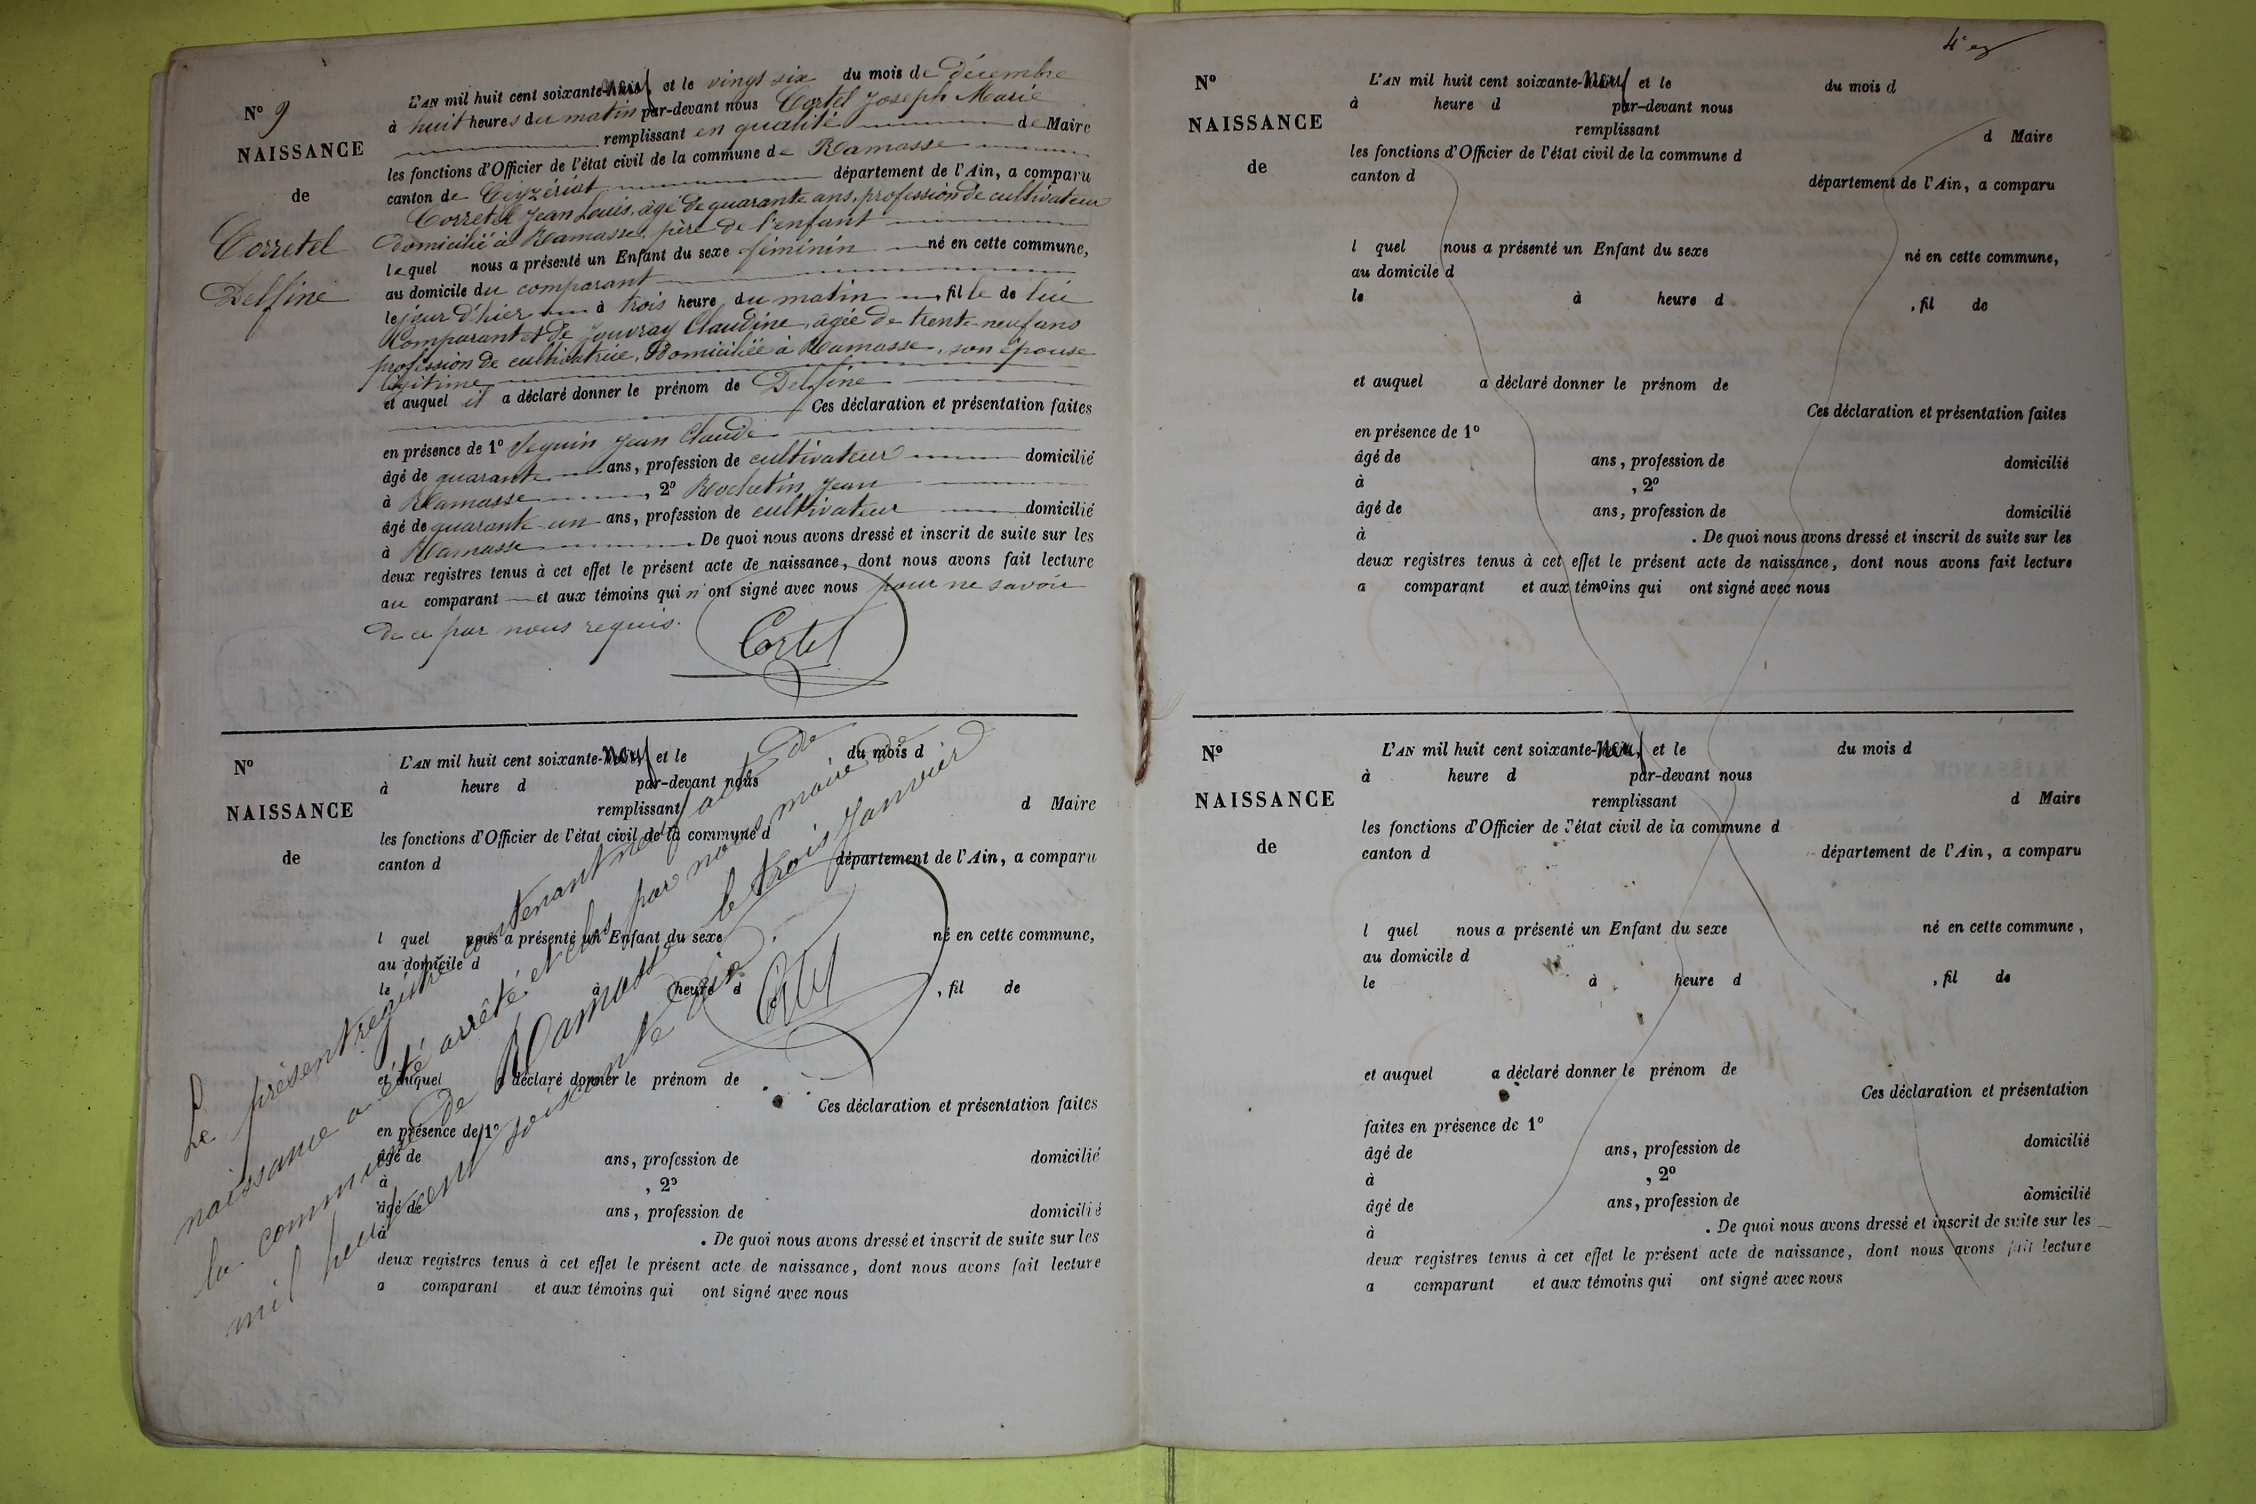 N° 9
NAISSANCE
de
Corretel
Delfine
L'AN mil huit cent soixante-neuf et le vingt six du mois de décembre
à huit heures du matin par-devant nous Cortel Joseph Marie
remplissant en qualité de Maire
les fonctions d'Officier de l'état civil de la commune de Ramasse
canton de Ceyzériat département de l'Ain, a comparu
Corretel Jean Louis, âgé de quarante ans, profession de cultivateur
domicilié à Ramasse, père de l'enfant
lequel nous a présenté un Enfant du sexe féminin né en cette commune,
au domicile du comparant
le jour d'hier à trois heure du matin, fille de lui
Comparant et de Jouvray Claudine, âgée de trente-neuf ans
profession de cultivatrice, Domiciliée à Ramasse, son épouse
légitime
et auquel il a déclaré donner le prénom de Delfine
Ces déclaration et présentation faites
en présence de 1° Seguin Jean Claude
âgé de quarante ans, profession de cultivateur domicilié
à Ramasse, 2° Rochetin Jean
âgé de quarante-un ans, profession de cultivateur domicilié
à Ramasse. De quoi nous avons dressé et inscrit de suite sur les
deux registres tenus à cet effet le présent acte de naissance, dont nous avons fait lecture
au comparant et aux témoins qui n'ont signé avec nous pour ne savoir
de ce par nous requis.
Cortel
N°
NAISSANCE
de
L'AN mil huit cent soixante-neuf et le du mois d
à heure d par-devant nous
remplissant d Maire
les fonctions d'Officier de l'état civil de la commune d
canton d département de l'Ain, a comparu
l quel nous a présenté un Enfant du sexe né en cette commune,
au domicile d
le à heure d , fil de
et auquel a déclaré donner le prénom de
Ces déclaration et présentation faites
en présence de 1°
âgé de ans, profession de domicilié
à , 2°
âgé de ans, profession de domicilié
à . De quoi nous avons dressé et inscrit de suite sur les
deux registres tenus à cet effet le présent acte de naissance, dont nous avons fait lecture
a comparant et aux témoins qui ont signé avec nous
Le présent registre contenant neuf actes de
naissance a été arrêté et clos par nous maire de
la commune de Ramasse le trois Janvier
mil huit cent soixante dix.
Cortel
4e
N°
NAISSANCE
de
L'AN mil huit cent soixante-neuf et le du mois d
à heure d par-devant nous
remplissant
d Maire
les fonctions d'Officier de l'état civil de la commune d
canton d département de l'Ain, a comparu
l quel nous a présenté un Enfant du sexe né en cette commune,
au domicile d
le à heure d , fil de
et auquel a déclaré donner le prénom de
Ces déclaration et présentation faites
en présence de 1°
âgé de ans, profession de domicilié
à , 2°
âgé de ans, profession de domicilié
à . De quoi nous avons dressé et inscrit de suite sur les
deux registres tenus à cet effet le présent acte de naissance, dont nous avons fait lecture
a comparant et aux témoins qui ont signé avec nous
N°
NAISSANCE
de
L'AN mil huit cent soixante-neuf et le du mois d
à heure d par-devant nous
remplissant d Maire
les fonctions d'Officier de l'état civil de la commune d
canton d département de l'Ain, a comparu
l quel nous a présenté un Enfant du sexe né en cette commune,
au domicile d
le à heure d , fil de
et auquel a déclaré donner le prénom de
Ces déclaration et présentation
faites en présence de 1°
âgé de ans, profession de domicilié
à , 2°
âgé de ans, profession de domicilié
à . De quoi nous avons dressé et inscrit de suite sur les
deux registres tenus à cet effet le présent acte de naissance, dont nous avons fait lecture
a comparant et aux témoins qui ont signé avec nous